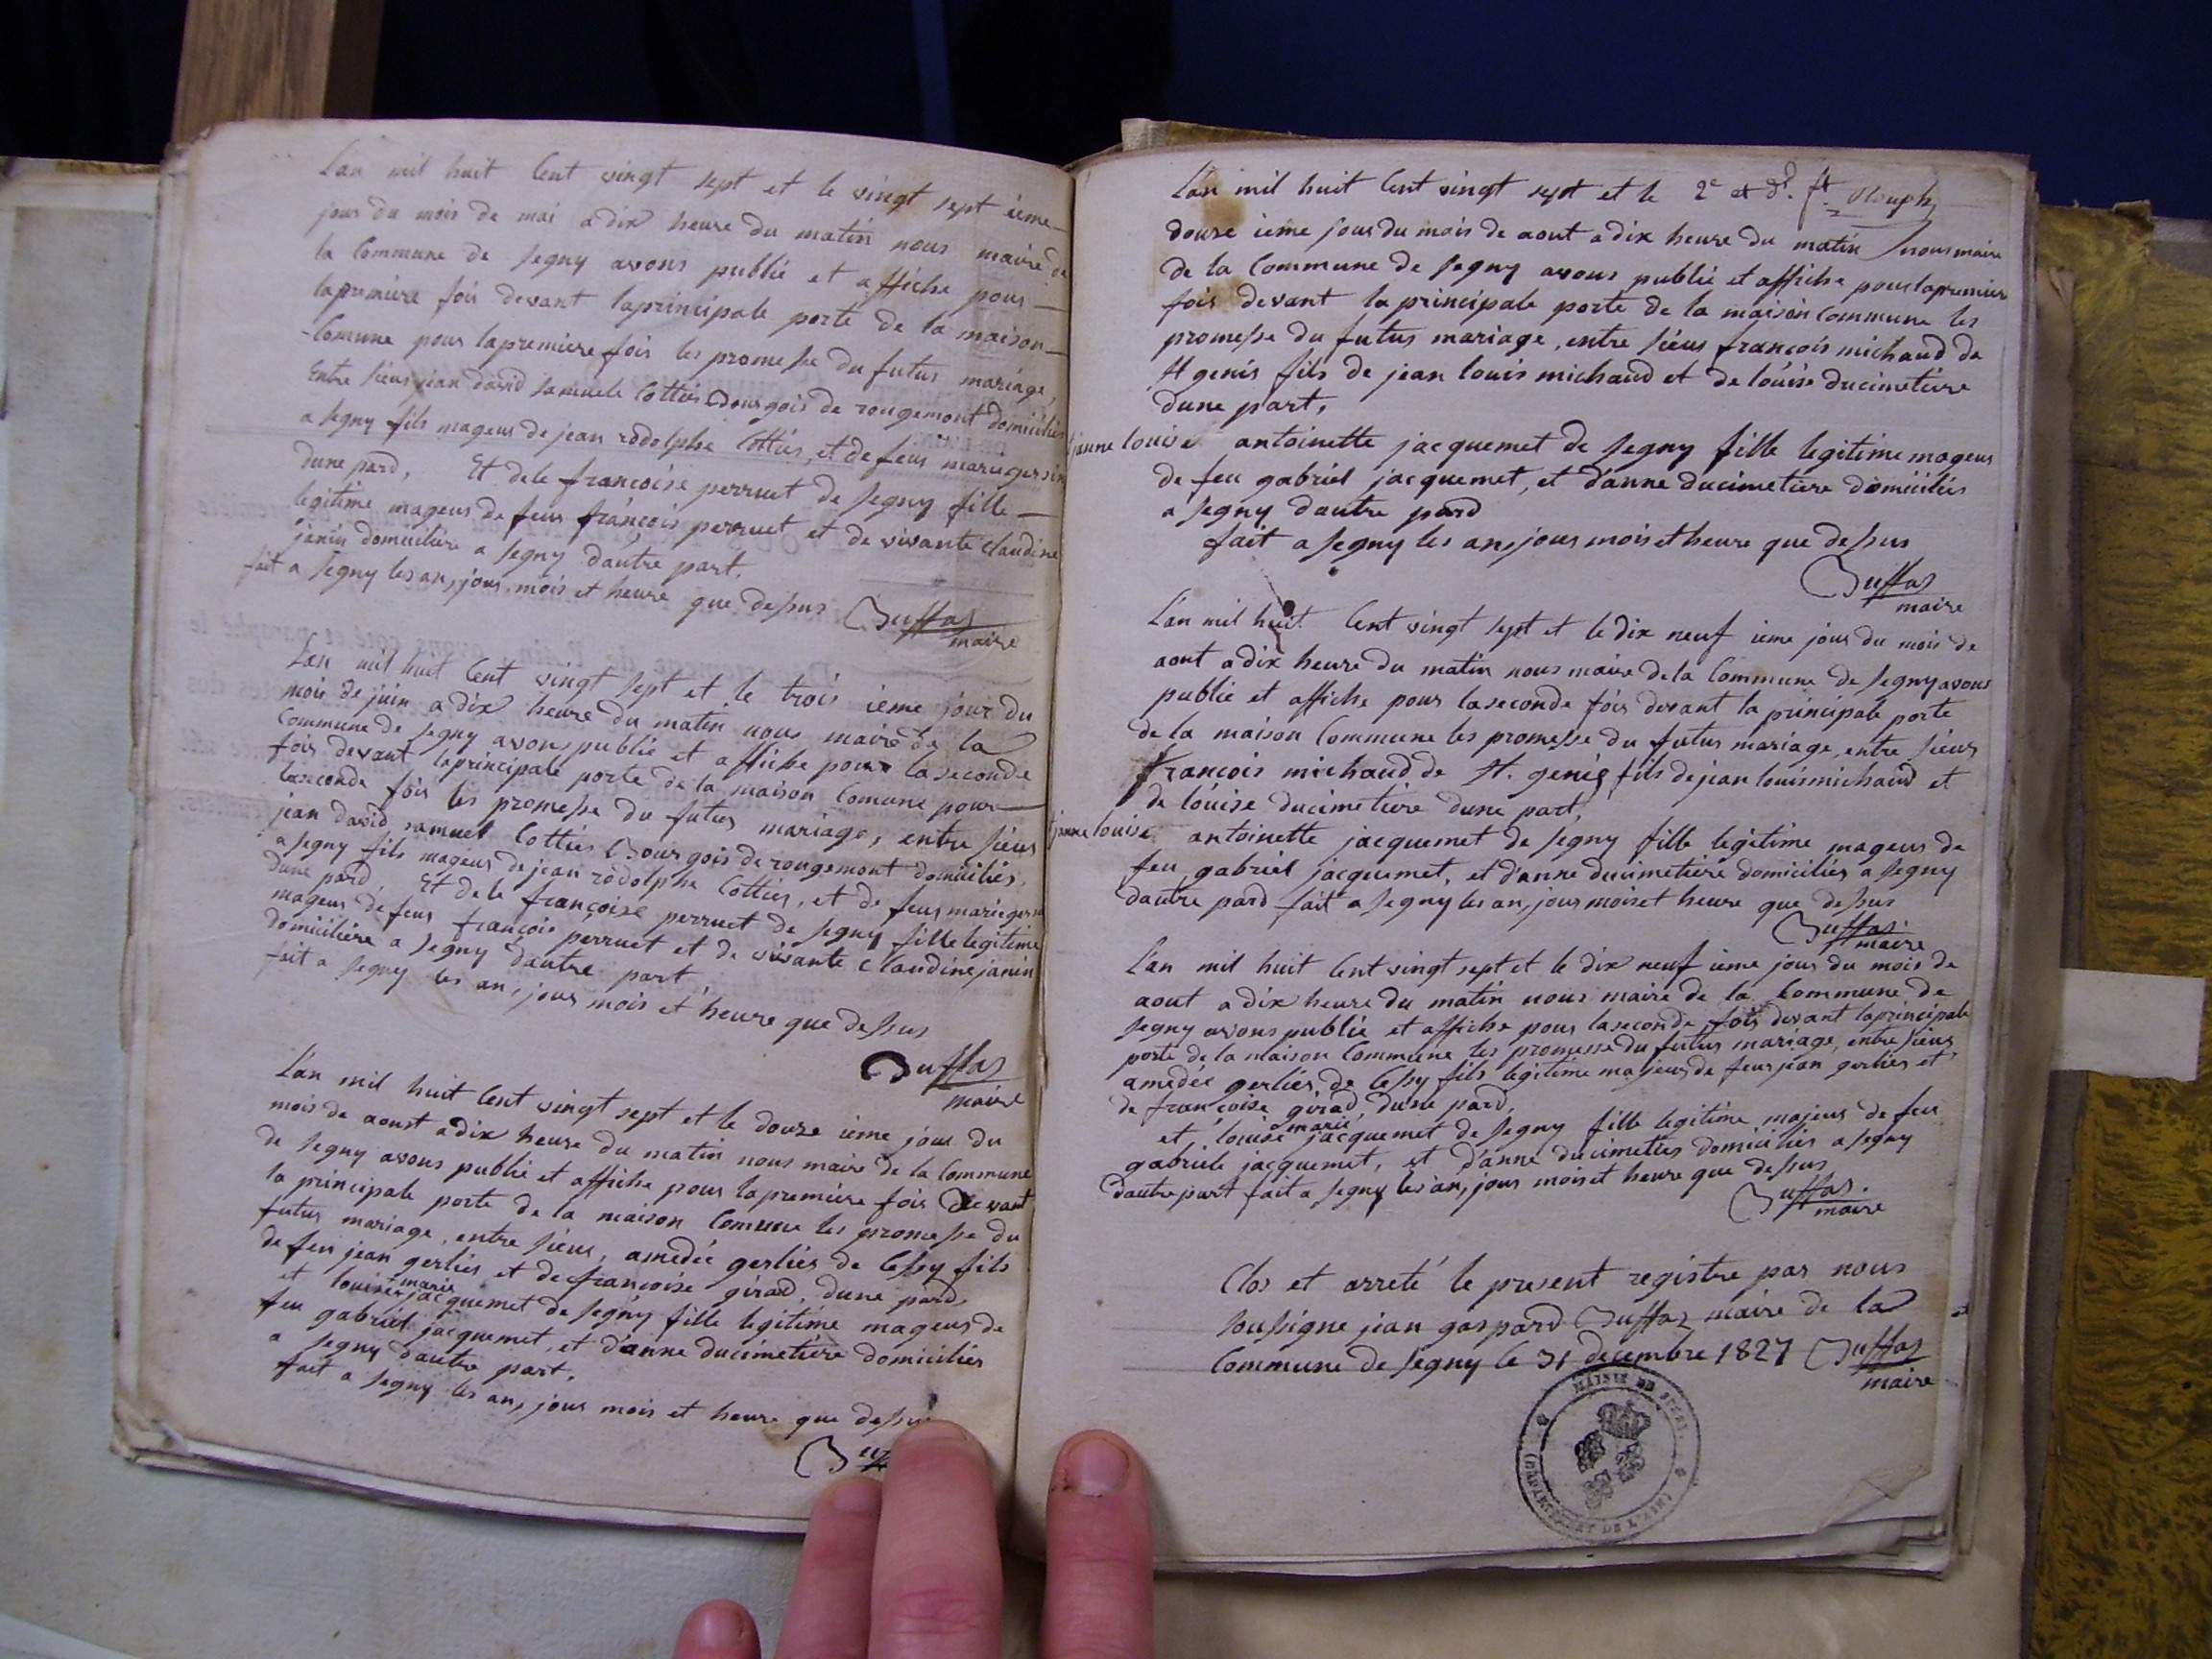 L'an mil huit Cent vingt sept et le vingt sept ieme
jour du mois de mai a dix heure du matin nous maire de
la Commune de Segny avons publié et affiche pour
la premiere fois devant la principale porte de la maison
Comune pour la premiere fois les promesse du futur mariage,
Entre sieur jean david samuele Cottier Bourgois de rougemont domiciliés
a Segny fils mageur de jean rodolphe Cottier, et de feus marie
dune pard, Et dele françoise perruet de Segny fille
legitime mageur de feus françois perruet et de vivante Claudine
janin domiciliere a Segny d'autre part.
fait a Segny les an, jour, mois et heure que dessus Buffaz
maire
L'an mil huit Cent vingt sept et le trois ieme jour du
mois de juin a dix heure du matin nous maire de la
Commune de Segny avons publié et affiche pour la seconde
fois devant la principale porte de la maison Comune pour
la seconde fois les promesse du futur mariage, entre sieur
jean david samuel Cottier Bourgois de rougemont domiciliés
a Segny fils mageur de jean rodolphe Cottier, et de feus marie
dune pard Et dele françoise perruet de Segny fille legitime
mageur de feus françois perruet et de vivante Claudine janin
domiciliere a Segny dautre part
fait a Segny les an, jour mois et heure que dessus
Buffaz
maire
L'an mil huit Cent vingt sept et le douze ieme jour du
mois de aoust a dix heure du matin nous maire de la Commune
de Segny avons publié et affiche pour la premiere fois devant
la principale porte de la maison Comune les promesse du
futur mariage, entre sieur, amedée gerlier de Cessy fils
de feu jean gerlier et de françoise girad, dune pard,
et louise marie jacquemet de Segny fille legitime mageur de
feu gabriel jacquemet, et d'anne ducimetiere domiciliés
a Segny dautre part,
fait a Segny les an, jour mois et heure que dessus
L'an mil huit Cent vingt sept et le 2e et
douze ieme jour du mois de aout a dix heure du matin nous maire
de la Commune de Segny avons publié et affiche pour la premier
fois devant la principale porte de la maison Commune les
promesse du futur mariage, entre sieur françois michaud de
St genis fils de jean louis michaud et de louise ducimetiere
dune part,
et janne louise antoinette jacquemet de Segny fille legitime mageur
de feu gabriel jacquemet, et d'anne ducimetiere domiciliés
a Segny dautre pard
fait a Segny les an, jour mois et heure que dessus
Buffaz
maire
L'an mil huit Cent vingt sept et le dix neuf ieme jour du mois de
aout a dix heure du matin nous maire de la Commune de Segny avons
publié et affiche pour la seconde fois devant la principale porte
de la maison Commune les promesse du futur mariage, entre sieur
françois michaud de St. genis fils de jean louis michaud et
de louise ducimetiere dune part,
et janne louise antoinette jacquemet de Segny fille legitime mageur de
feu gabriel jacquemet, et d'anne ducimetiere domiciliés a Segny
dautre pard fait a Segny les an, jour mois et heure que dessus
Buffaz
maire
L'an mil huit Cent vingt sept et le dix neuf ieme jour du mois de
aout a dix heure du matin nous maire de la Commune de
Segny avons publié et affiche pour la seconde fois devant la principale
porte de la maison Commune les promesse du futur mariage, entre sieur
amedée gerlier de Cessy fils legitime mageur de feus jean gerlier et
de françoise girad, dune pard,
et, louise marie jacquemet de Segny fille legitime majeur de feu
gabriele jacquemet, et d'anne ducimetier domiciliés a Segny
dautre part fait a Segny les an, jour mois et heure que dessus
Buffaz.
maire
Clos et arreté le present registre par nous
soussigne jean gaspard Buffaz maire de la
Commune de Segny le 31 decembre 1827 Buffaz
maire
MAIRIE DE SEGNY
(DEPARTEMENT DE L'AIN)